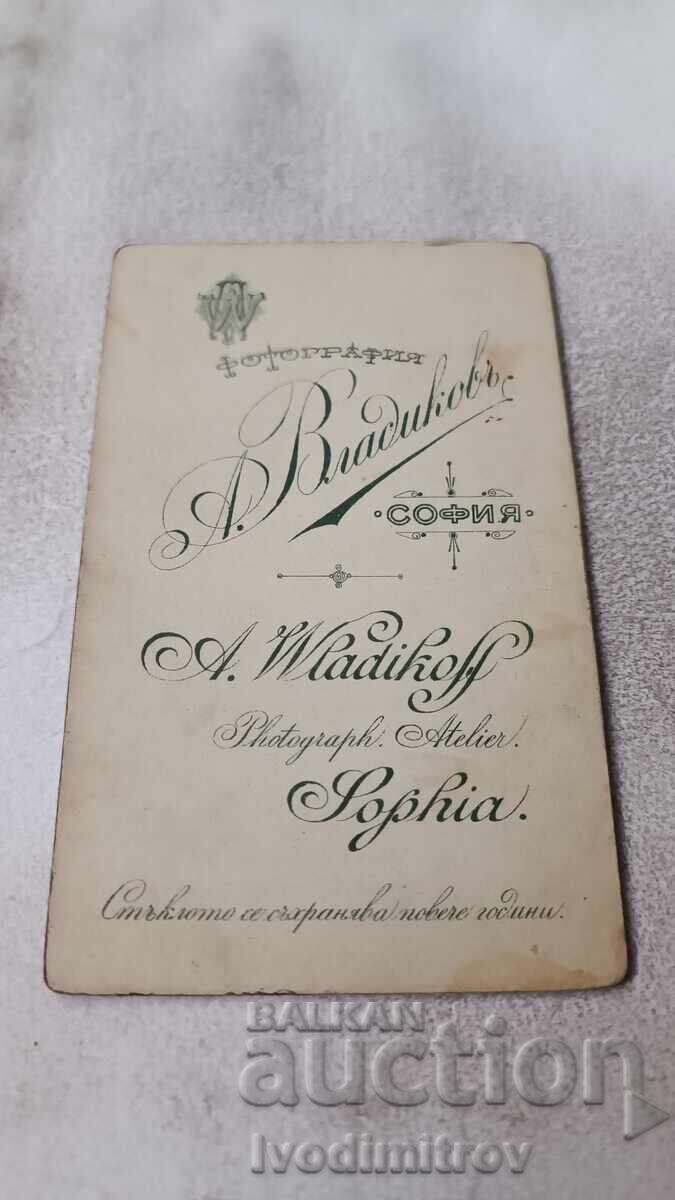 AW
ФОТОГРАФИЯ
А. Владиковъ
СОФИЯ
A. Wladikoff
Photograph. Atelier.
Sophia.
Стъклото се съхранява повече години.
BALKAN
auction
Ivodimitrov